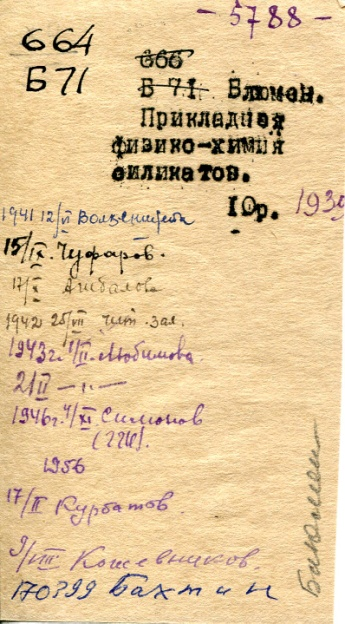 - 5788 -
664
Б71
666
Б 71 Блюмен.
Прикладная
физико-химия
силикатов.
1эр. 1939
1941 12/VI
15/IX. Чуфаров.
17/X Агибалова
1942 25/VII Чит. Зал.
1943г. 1/II. Любимова.
21 II — „ —
1946г. 4/XI Симонов
1956
17/II Курбатов
9/VIII Кожевников.
170399 Бахтин